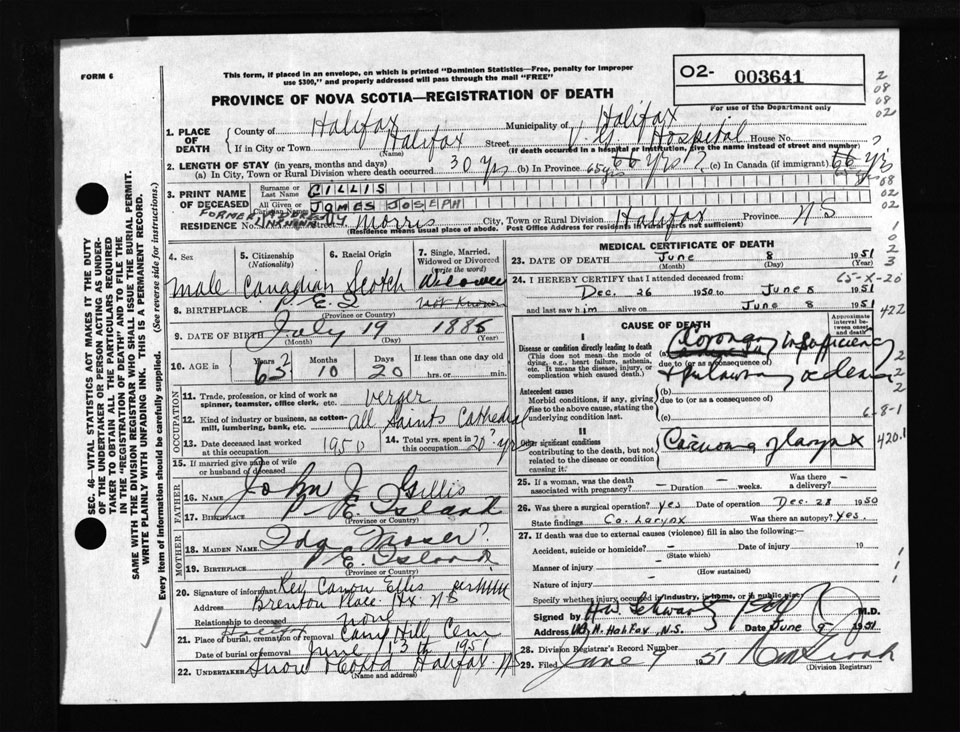 FORM 6
This form, if placed in an envelope, on which is printed "Dominion Statistics—Free, penalty for improper
use $300," and properly addressed will pass through the mail "FREE"
PROVINCE OF NOVA SCOTIA—REGISTRATION OF DEATH
O2- 003641
For use of the Department only
2
08
08
02
1. PLACE OF DEATH
County of Halifax Municipality of Halifax
If in City or Town Halifax Street V.G. Hospital House No.
(Name) (If death occurred in a hospital or institution, give the name instead of street and number)
2. LENGTH OF STAY (in years, months and days)
(a) In City, Town or Rural Division where death occurred 30 yrs (b) in Province 65 yrs 66 yrs ? (c) in Canada (if immigrant) 66 yrs
3. PRINT NAME OF DECEASED
Surname or Last Name GILLIS
All Given or Christian Names JAMES JOSEPH
RESIDENCE No. Street Morris City, Town or Rural Division Halifax Province N S
(Residence means usual place of abode. Post Office Address for residents in rural parts not sufficient)
4. Sex
male
5. Citizenship
(Nationality)
Canadian
6. Racial Origin
Scotch
7. Single, Married,
Widowed or Divorced
(write the word)
Widower
8. BIRTHPLACE P.E.I
(Province or Country)
Not Known
9. DATE OF BIRTH July 19 1885
(Month) (Day) (Year)
10. AGE in Years 65 Months 10 Days 20
If less than one day old
hrs. or min.
OCCUPATION
11. Trade, profession, or kind of work as
spinner, teamster, office clerk, etc. verger
12. Kind of industry or business, as cotten-
mill, lumbering, bank, etc. All Saints Cathedral
13. Date deceased last worked
at this occupation 1950
14. Total yrs. spent in
this occupation 20? yrs
15. If married give name of wife
or husband of deceased
FATHER
16. Name John J. Gillis
17. Birthplace P E Island
(Province or Country)
MOTHER
18. MAIDEN NAME Ida Moser?
19. BIRTHPLACE P E Island
(Province or Country)
20. Signature of informant Rev Canon Ellis
Address Brenton Place Hx. N S
Relationship to deceased none
21. Place of burial, cremation or removal Halifax Camp Hill Cem
Date of burial or removal June 13th 1951
22. UNDERTAKER Snow Halifax NS
(Name and address)
MEDICAL CERTIFICATE OF DEATH
23. DATE OF DEATH June 8 1951
(Month) (Day) (Year)
24. I HEREBY CERTIFY that I attended deceased from:
Dec. 26 1950 to June 8 1951
and last saw him alive on June 8 1951
65-X-20
422
CAUSE OF DEATH
Approximate
interval between
onset
and death
I
Disease or condition directly leading to death
(This does not mean the mode of
dying, e.g., heart failure, asthenia,
etc. It means the disease, injury, or
complication which caused death.)
(a) Coronary insufficiency
due to (or as a consequence of)
+ Pulmonary oedema
Antecedent causes
Morbid conditions, if any, giving
rise to the above cause, stating the
underlying condition last.
(b)
due to (or as a consequence of)
(c)
6-8-1
II
Other significant conditions
contributing to the death, but not
related to the disease or condition
causing it.
Carcinoma of larynx
420.1
25. If a woman, was the death
associated with pregnancy? — Duration — weeks. Was there
a delivery? —
26. Was there a surgical operation? Yes Date of operation Dec. 28 1950
State findings Ca. Larynx Was there an autopsy? Yes.
27. If death was due to external causes (violence) fill in also the following:
Accident, suicide or homicide? — Date of injury 19
(State which)
Manner of injury —
(How sustained)
Nature of injury —
Specify whether injury occurred in industry, in home, or in public place
Signed by H.W. Schwartz M.D.
Address Halifax N.S. Date June 9 1951
28. Division Registrar's Record Number
29. Filed June 9 1951
(Division Registrar)
SEC. 46—VITAL STATISTICS ACT MAKES IT THE DUTY
OF THE UNDERTAKER OR PERSON ACTING AS UNDER-
TAKER TO OBTAIN ALL THE PARTICULARS REQUIRED
IN THE "REGISTRATION OF DEATH" AND TO FILE THE
SAME WITH THE DIVISION REGISTRAR WHO SHALL ISSUE THE BURIAL PERMIT.
WRITE PLAINLY WITH UNFADING INK. THIS IS A PERMANENT RECORD.
Every item of information should be carefully supplied. (See reverse side for instructions.)